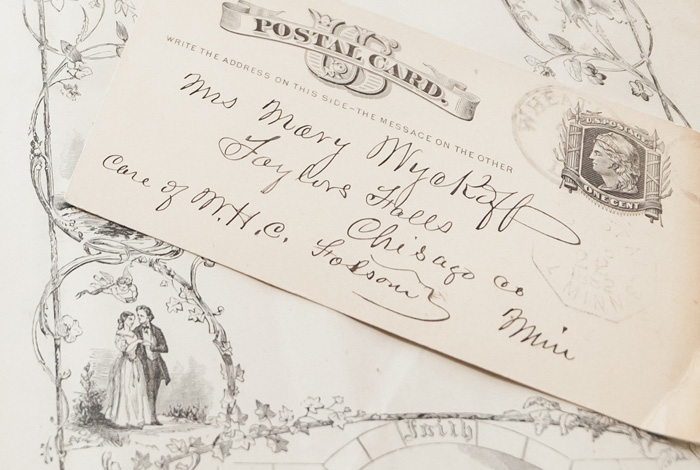 POSTAL CARD.
WRITE THE ADDRESS ON THIS SIDE—THE MESSAGE ON THE OTHER
U.S. POSTAGE
ONE CENT
Mrs Mary Wyckoff
Taylors Falls
Chisago Co
Minn
Care of W.H.C. Folsom
MINN
Faith